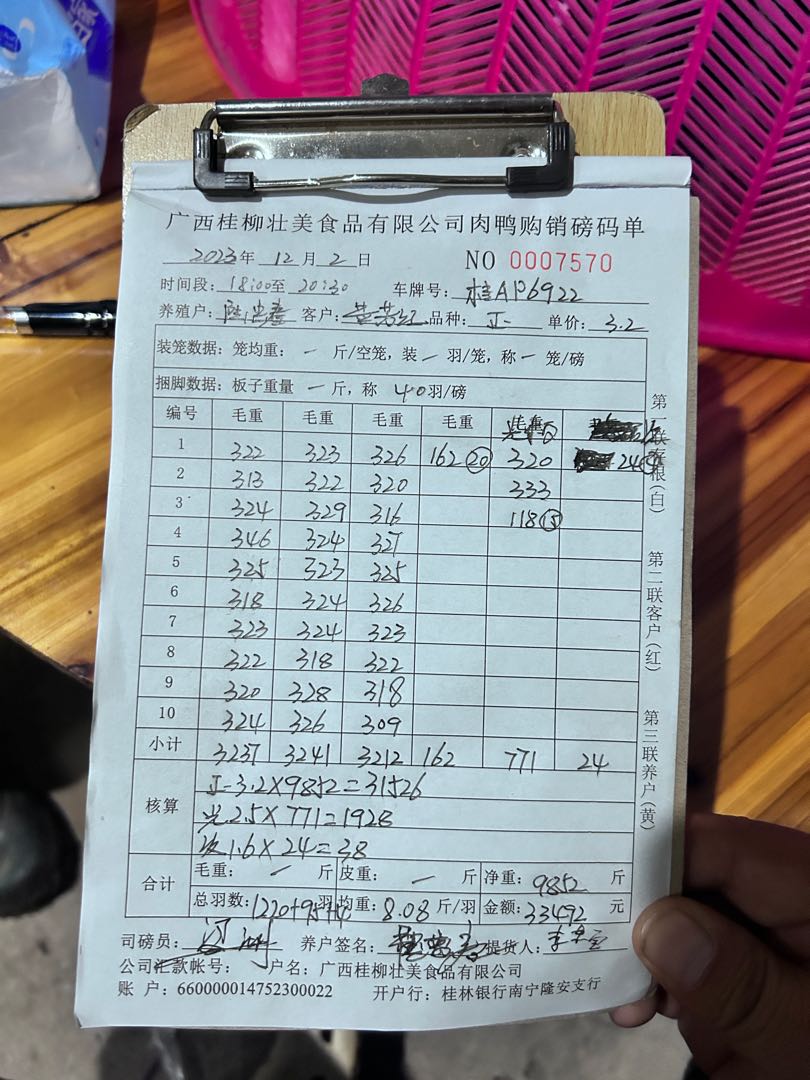 广西桂柳壮美食品有限公司肉鸭购销磅码单
2023年 12月 2日 NO 0007570
时间段: 18:00至 20:30 车牌号: 桂AP6922
养殖户: 客户: 品种: 正 单价: 3.2
装笼数据: 笼均重: 一 斤/空笼, 装 一 羽/笼, 称 一 笼/磅
捆脚数据: 板子重量 一 斤, 称 40羽/磅
编号 毛重 毛重 毛重 毛重
1 322 323 326 162 20 320 24
2 313 322 320 333
3 324 329 316 118 15
4 346 324 327
5 325 323 325
6 318 324 326
7 323 324 323
8 322 318 322
9 320 328 318
10 324 326 309
小计 3237 3241 3212 162 771 24
核算 正-3.2×9852=31526
光2.5×771=1928
次1.6×24=38
合计 毛重: 一 斤 皮重: 一 斤 净重: 9852 斤
总羽数: 1220+95+4 羽 均重: 8.08 斤/羽 金额: 33492 元
司磅员: 养户签名: 提货人:
公司汇款帐号: 户名: 广西桂柳壮美食品有限公司
账 户: 660000014752300022 开户行: 桂林银行南宁隆安支行
第一联存根(白)
第二联客户(红)
第三联养户(黄)